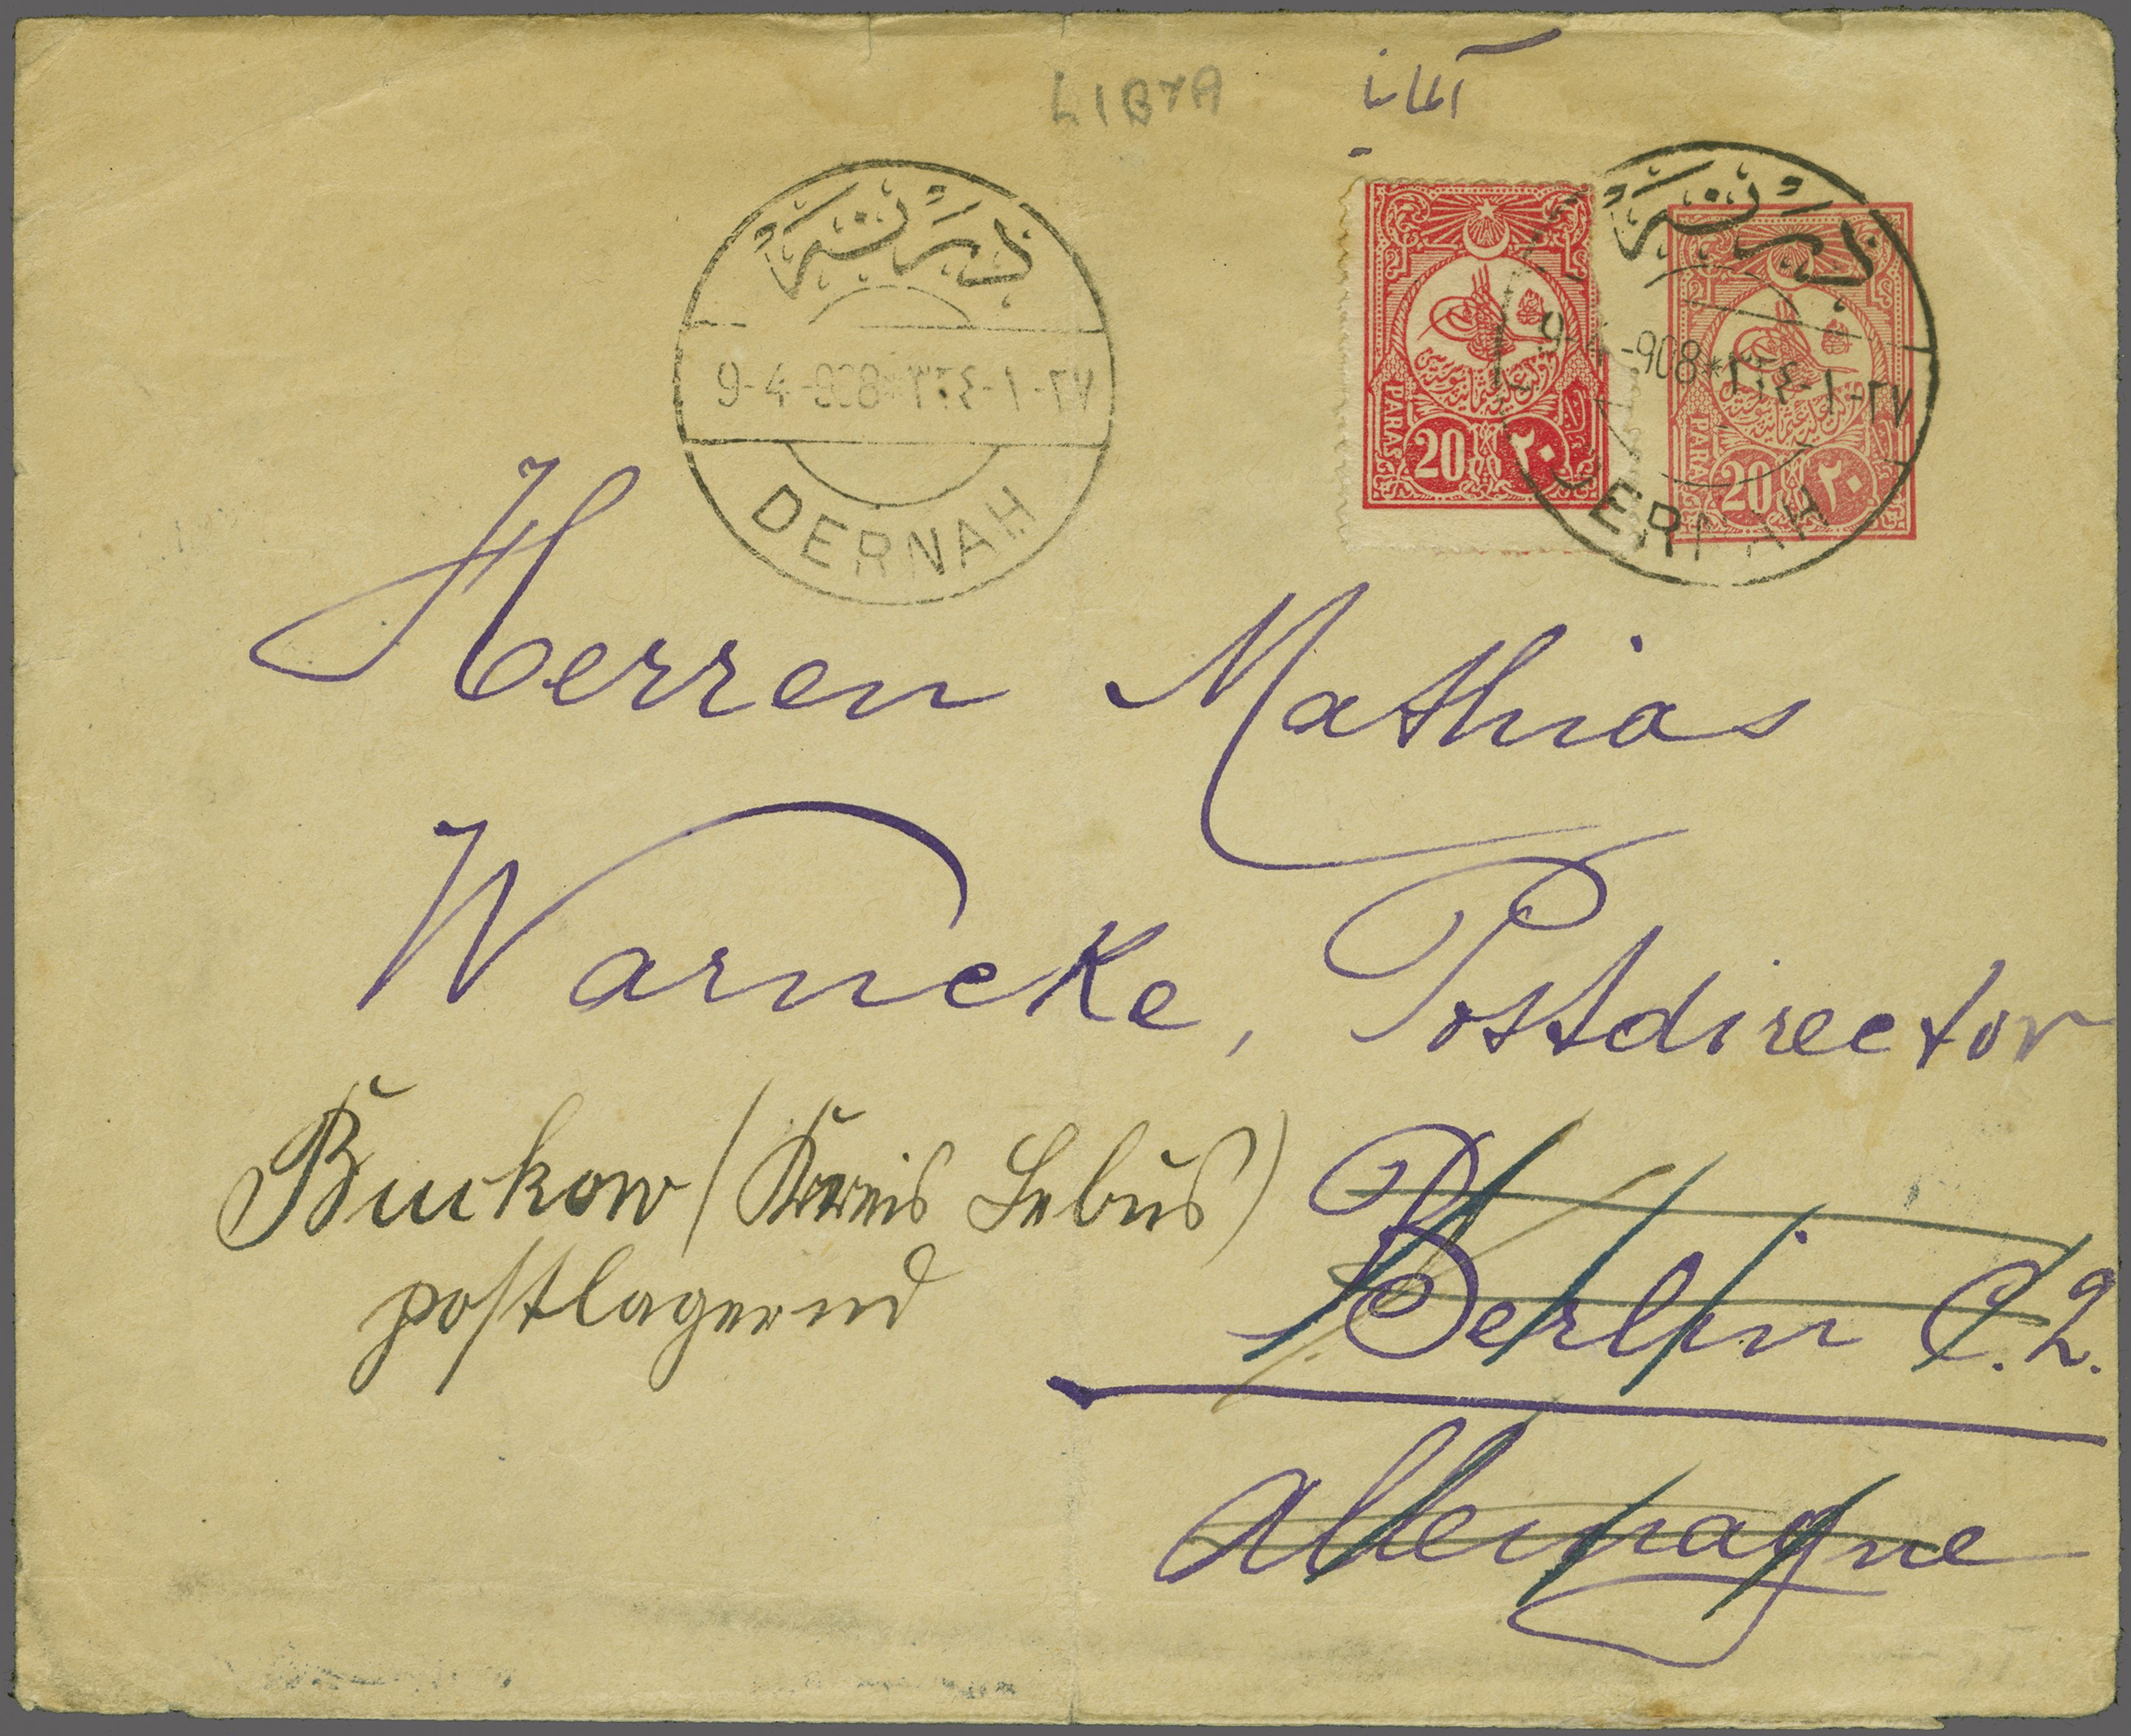 LIBYA
آلمانيا
درنه
9-4-908*٣٢٤-١-٢٧
DERNAH
PARAS 20 ٢٠
درنه
9-4-908*٣٢٤-١-٢٧
DERNAH
PARAS 20 ٢٠
Herren Mathias
Warncke, Postdirector
Buckow (Kreis Lebus)
postlagernd
Berlin C. 2.
Allemagne